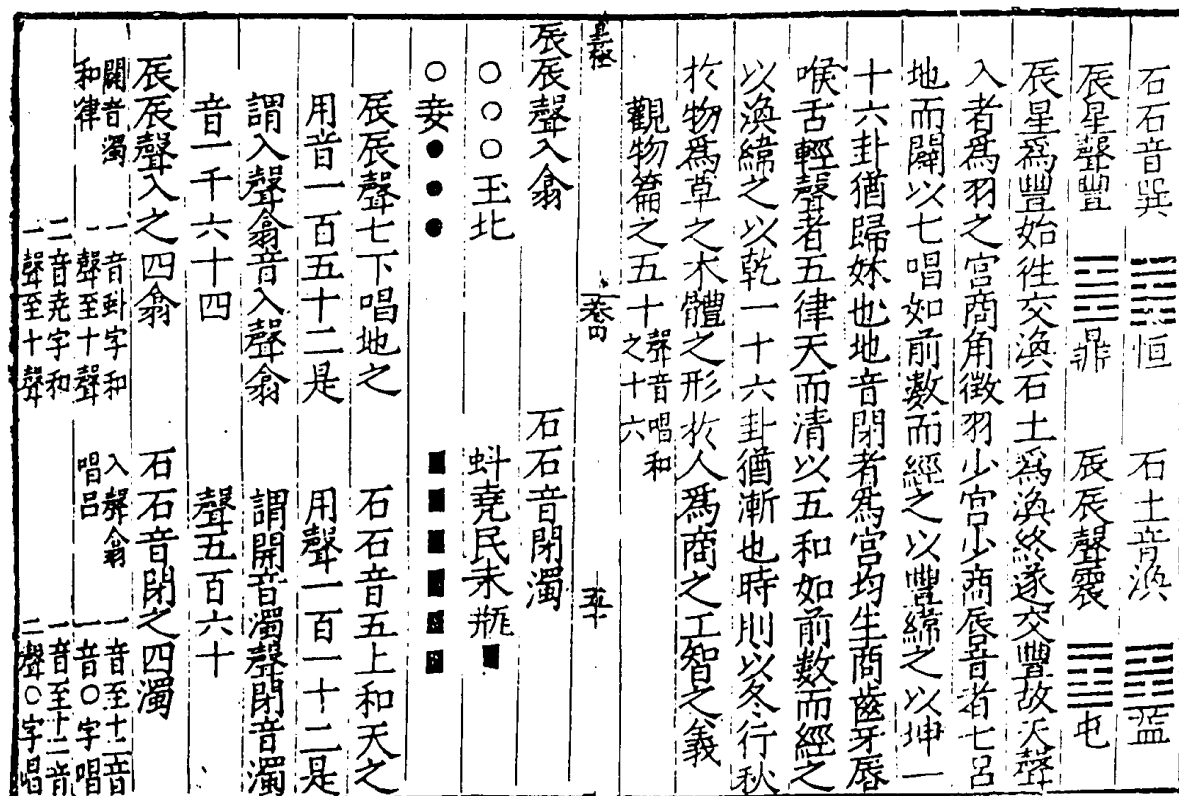 石石音巽 ䷸ 恒　石土音渙 ䷺ 蓝
辰星聲豐 ䷶ 鼎　辰辰聲震 ䷲ 屯
辰星爲豐始徃交渙石土爲渙終遂交豐故天聲
入者爲羽之宮商角徴羽少宮少商唇音者七呂
地而闢以七唱如前數而經之以豐緯之以坤一
十六卦猶歸妹也地音閉者爲宮均生商齒牙唇
喉舌輕聲者五律天而清以五和如前數而經之
以渙緯之以乾一十六卦猶漸也時則以冬行秋
於物爲草之木體之形於人爲商之工智之義
觀物篇之五十 聲音唱和之十六
皇極　卷四　五十
辰辰聲入翕　石石音閉濁
○○○玉北　蚪堯民未甁■
○妾●●●　■■■■■■
辰辰聲七下唱地之　石石音五上和天之
用音一百五十二是　用聲一百一十二是
謂入聲翕音入聲翕　謂開音濁聲閉音濁
音一千六十四　聲五百六十
辰辰聲入之四翕　石石音閉之四濁
開音濁和律　一音卦字和一聲至十聲　入聲翕唱呂　一音至十二音一音○字唱
二音尭字和一聲至十聲　一音至十二音二聲○字唱